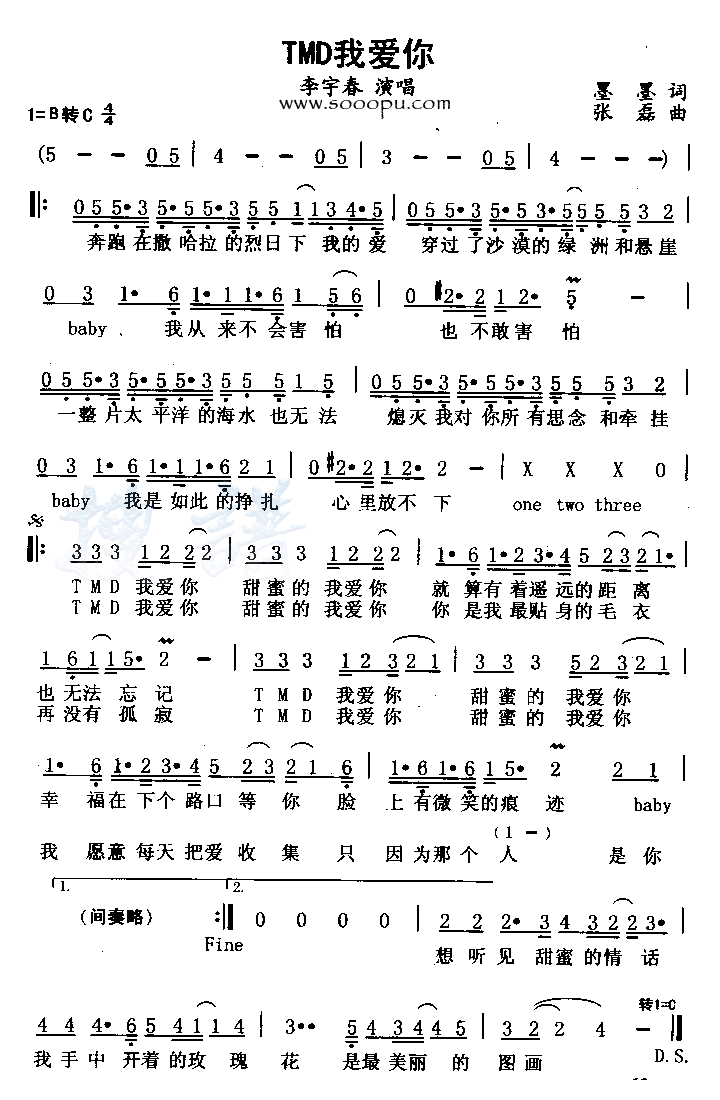 TMD我爱你
李宇春 演唱
www.sooopu.com
墨 墨 词
1=B转C 4/4
张 磊 曲
(5 - - 05 | 4 - - 05 | 3 - - 05 | 4 - - -)
055·3 5·55·3 55 1 113 4·5 | 055·3 5·53·5 53 2
奔跑在撒哈拉的烈日下 我的爱 穿过了沙漠的绿洲和悬崖
0 3 1· 6 1·11·6 1 56 | 0 #2·2 12· 5 -
baby、 我从来不会害怕 也不敢害怕
055·3 5·55·3 55 5 15 | 055·3 5·53·5 55 3 2
一整片太平洋的海水也无法 熄灭我对你所有思念和牵挂
0 3 1·6 1·11·6 2 1 | 0#2·2 12·2 - | X X X 0
baby 我是如此的挣扎 心里放不下 one two three
333 1222 | 333 1222 | 1·6 1·23·4 5 23 21·
TMD 我爱你 甜蜜的我爱你 就算有着遥远的距离
TMD 我爱你 甜蜜的我爱你 你是我最贴身的毛衣
1 61 15· 2 - | 333 12 321 | 333 52 321
也无法忘记 TMD 我爱你 甜蜜的我爱你
再没有孤寂 TMD 我爱你 甜蜜的我爱你
1· 6 1·23·4 5 23 21 6 | 1·61·6 15· 2 21
幸福在下个路口等你脸上有微笑的痕迹 baby
(1 -)
我愿意每天把爱收集只因为那个人是你
1. 2.
(间奏略) :‖ 0 0 0 0 | 2 2 2· 3 4 3 22 3·
Fine
想听见甜蜜的情话
转1=C
4 4 4·65 41 14 | 3·· 5 4434 | 322 4 -
我手中开着的玫瑰花 是最美丽的图画
D.S.